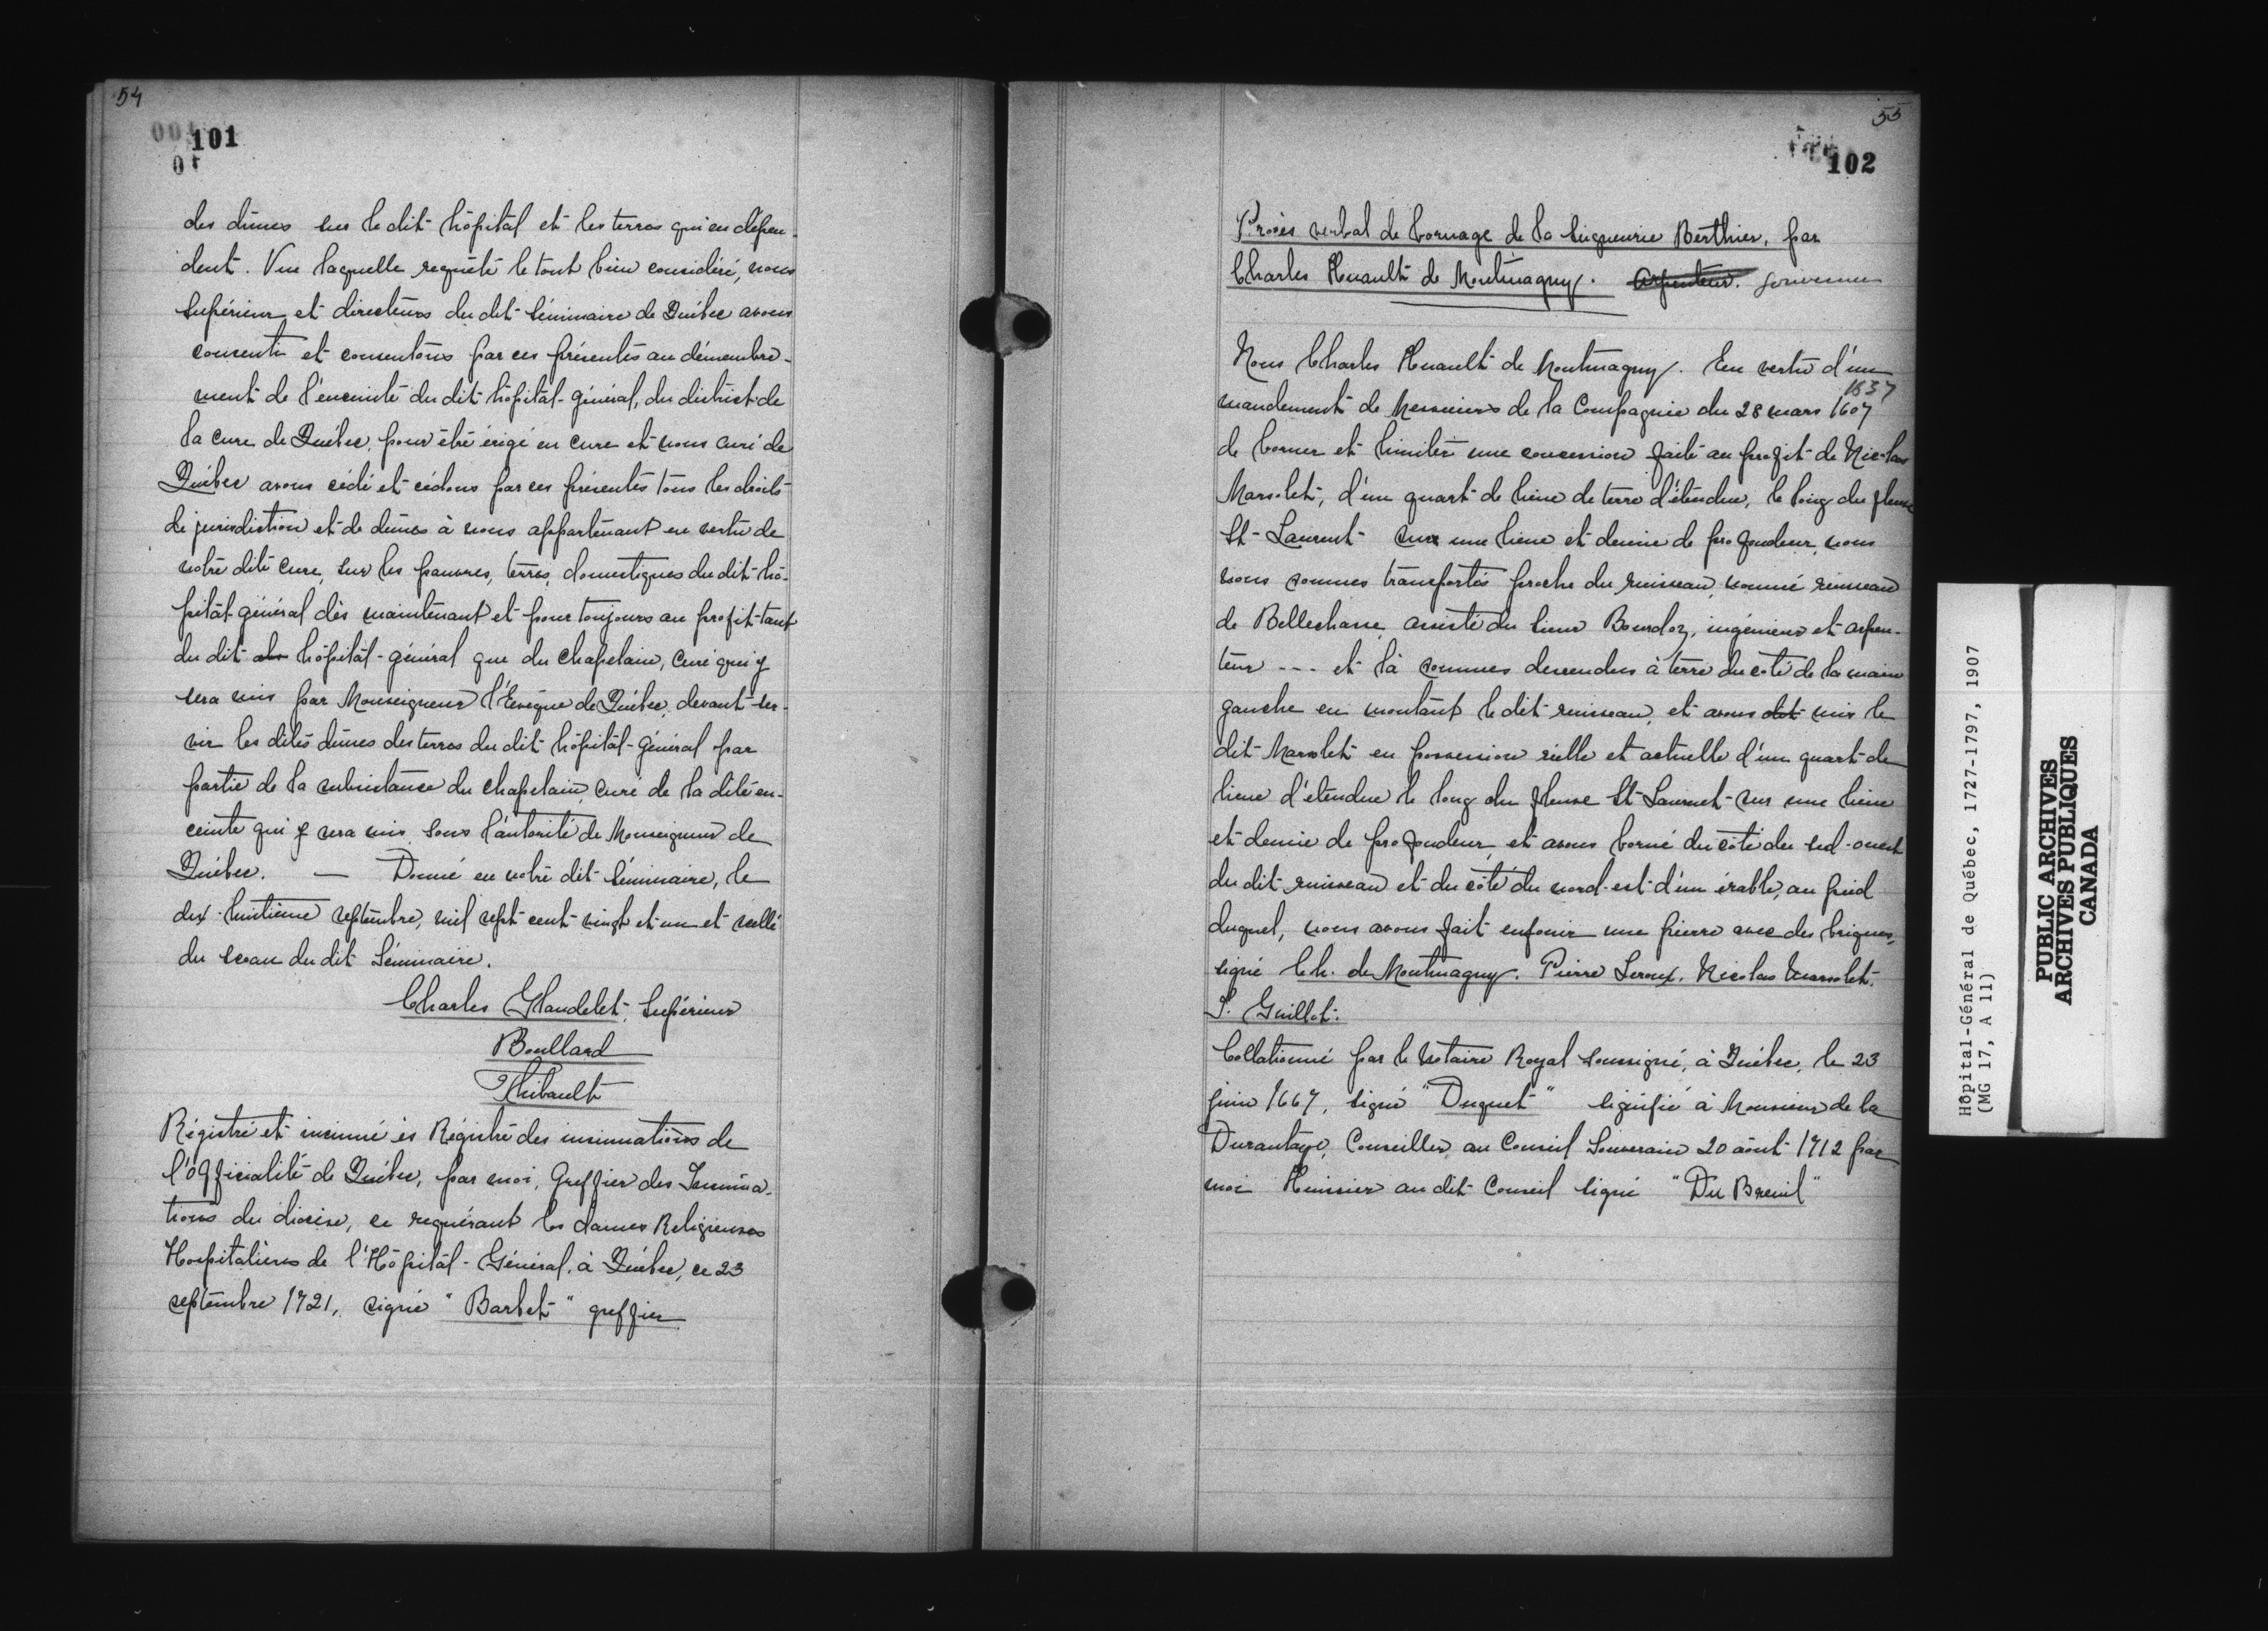 54
101
des dîmes sur le dit hôpital et les terres qui en dépen-
dent. Vue laquelle requête le tout bien considéré, nous
Supérieur et directeurs du dit Séminaire de Québec avons
consenti et consentons par ces présentes au démembre-
ment de l'enceinte du dit hôpital-général, du district de
la cure de Québec, pour être érigé en cure et nous curé de
Québec avons cédé et cédons par ces présentes tous les droits
de jurisdiction et de dîmes à nous appartenant en vertu de
notre dite cure, sur les pauvres, terres, domestiques du dit hô-
pital-général dès maintenant et pour toujours au profit tant
du dit hôpital-général que du Chapelain, Curé qui y
sera mis par Monseigneur l'Evêque de Québec, devant ser-
vir les dites dîmes des terres du dit hôpital-général par
partie de la subsistance du chapelain, curé de la dite en-
ceinte qui y sera mis sous l'autorité de Monseigneur de
Québec. — Donné en notre dit Séminaire, le
dix-huitième septembre, mil sept cent vingt et un et scellé
du sceau du dit Séminaire.
Charles Glandelet, Supérieur
Boullard
Thibault
Régistré et insinué ès Régistre des insinuations de
l'Officialité de Québec, par moi, Greffier des Insinua-
tions du diocèse, ce requérant les dames Religieuses
Hospitalières de l'Hôpital-Général, à Québec, ce 23
septembre 1721, signé "Barbet" greffier
55
102
Procès verbal de bornage de la Seigneurie Berthier, par
Charles Huault de Montmagny. Arpenteur. gouverneur
Nous Charles Huault de Montmagny. En vertu d'un
1637
mandement de Messieurs de la Compagnie du 28 mars 1607
de borner et limiter une concession faite au profit de Nicolas
Marsolet, d'un quart de lieue de terre d'étendue, le long du fleuve
St-Laurent sur une lieue et demie de profondeur, nous
nous sommes transportés proche du ruisseau, nommé ruisseau
de Bellechasse, assisté du Sieur Bourdon, ingénieur et arpen-
teur --- et là sommes descendus à terre du côté de la main
gauche en montant le dit ruisseau, et avons dit mis le
dit Marsolet en possession réelle et actuelle d'un quart de
lieue d'étendue le long du fleuve St-Laurent sur une lieue
et demie de profondeur, et avons borné du côté du sud-ouest
du dit ruisseau et du côté du nord-est d'un érable, au pied
duquel, nous avons fait enfouir une pierre avec des briques,
signé Ch. de Montmagny. Pierre Leroux. Nicolas Marsolet.
P. Guillet.
Collationné par le Notaire Royal soussigné, à Québec, le 23
juin 1667, signé "Duquet" signifié à Monsieur de la
Durantaye, Conseiller au Conseil Souverain 20 août 1712 par
moi Huissier au dit Conseil signé "Du Breuil"
Hôpital-Général de Québec, 1727-1797, 1907
(MG 17, A 11)
PUBLIC ARCHIVES
ARCHIVES PUBLIQUES
CANADA